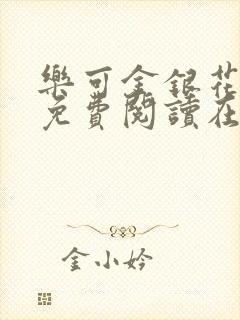 樂可金銀花
免費閱讀在
金小妗